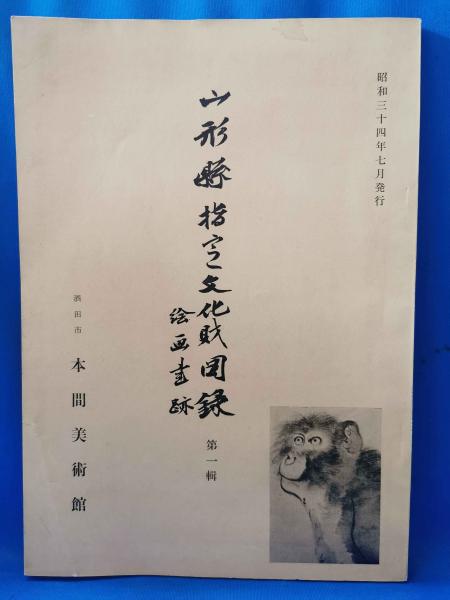 昭和三十四年七月発行
山形縣指定文化財図録
絵画書跡
第一輯
酒田市 本間美術館